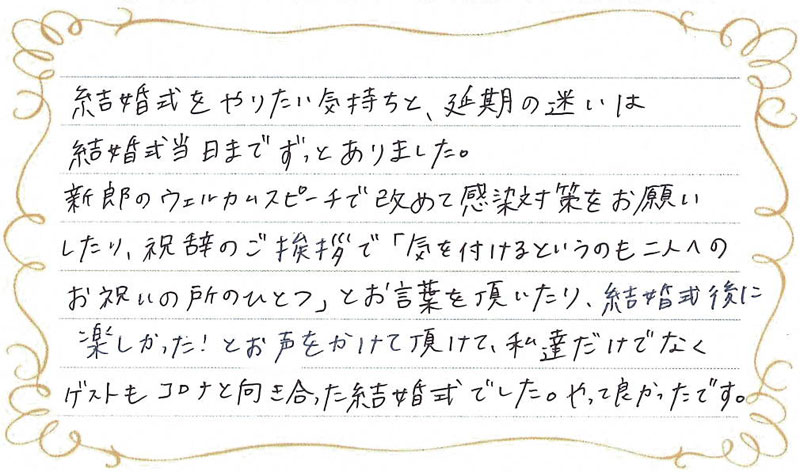 結婚式をやりたい気持ちと、延期の迷いは
結婚式当日までずっとありました。
新郎のウェルカムスピーチで改めて感染対策をお願い
したり、祝辞のご挨拶で「気を付けるというのも二人への
お祝いの所のひとつ」とお言葉を頂いたり、結婚式後に
楽しかった！とお声をかけて頂けて、私達だけでなく
ゲストもコロナと向き合った結婚式でした。やって良かったです。